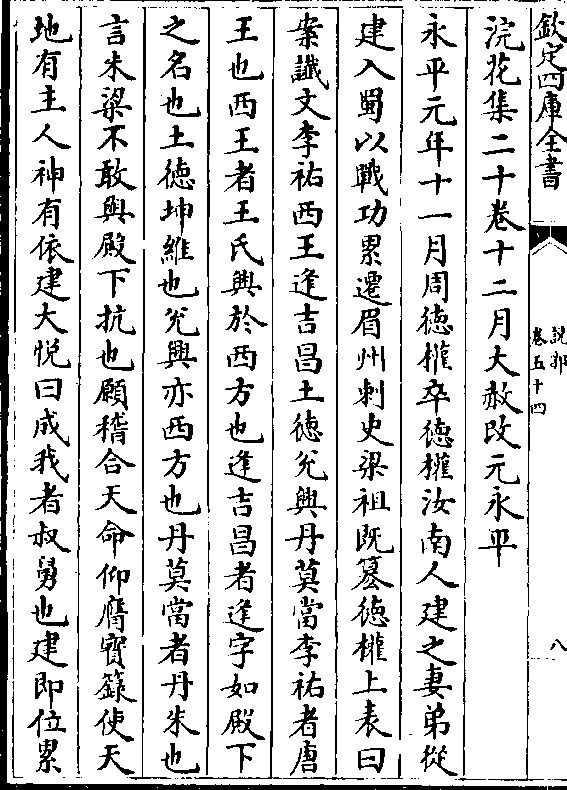 欽定四庫全書
說郛
卷五十四
八
浣花集二十卷十二月大赦改元永平
永平元年十一月周徳權卒徳權汝南人建之妻弟從
建入蜀以戰功累遷眉州刺史梁祖既簒徳權上表曰
案讖文李祐西王逢吉昌土徳兊興丹莫當李祐者唐
王也西王者王氏興於西方也逢吉昌者逢字如殿下
之名也土徳坤維也兊興亦西方也丹莫當者丹朱也
言朱梁不敢與殿下抗也願稽合天命仰膺寳籙使天
地有主人神有依建大悦曰成我者叔舅也建即位累